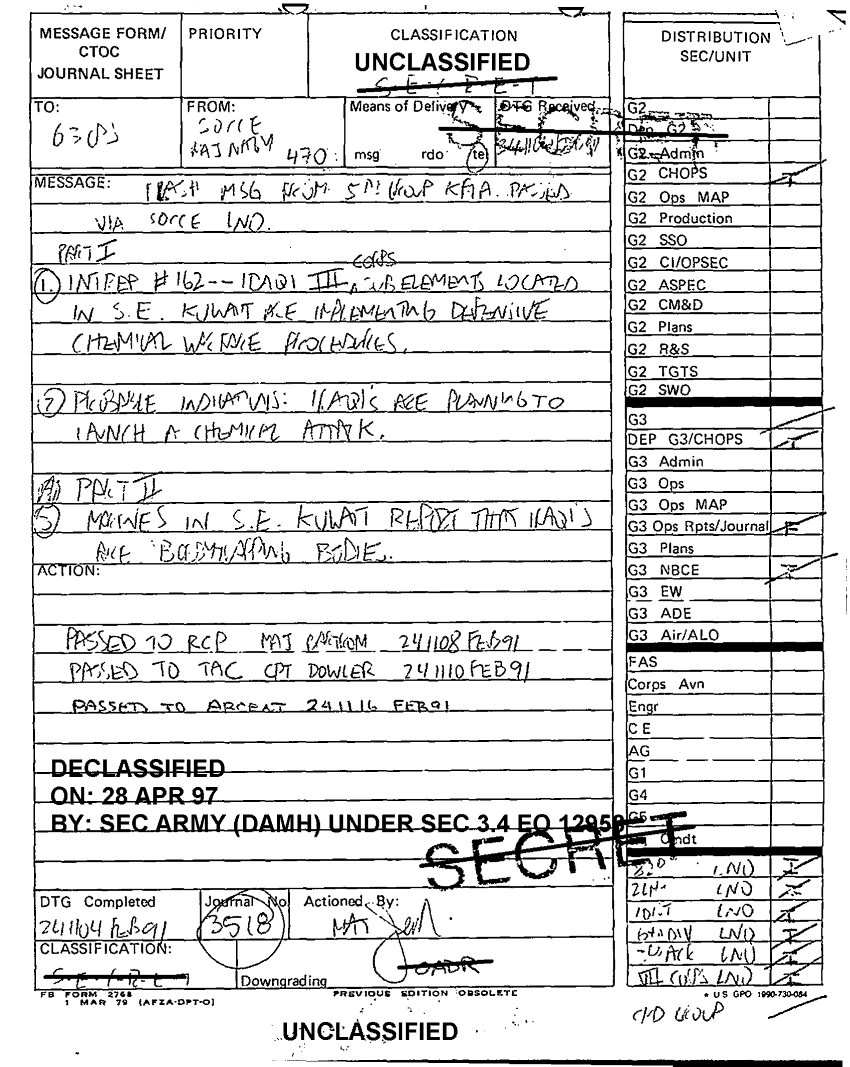 MESSAGE FORM/
CTOC
JOURNAL SHEET
PRIORITY
CLASSIFICATION
UNCLASSIFIED
S-E-C-R-E-T
DISTRIBUTION
SEC/UNIT
TO:
FROM:
SOCCE
470
Means of Delivery
msg rdo tel
DTG Received
SECRET
MESSAGE:
FLASH MSG FROM 5TH GROUP KFIA. PASSED
VIA SOCCE LNO.
PART I
1. INTREP #162-- IRAQI III CORPS SUB ELEMENTS LOCATED
IN S.E. KUWAIT ARE IMPLEMENTING DEFENSIVE
CHEMICAL WARFARE PROCEDURES.
2 PROBABLE INDICATIONS: IRAQI'S ARE PLANNING TO
LAUNCH A CHEMICAL ATTACK.
PART II
3 MARINES IN S.E. KUWAIT REPORT THAT IRAQI'S
ARE BOOBYTRAPPING BODIES.
ACTION:
PASSED TO RCP MAJ 241108 FEB91
PASSED TO TAC CPT DOWLER 241110 FEB91
PASSED TO ARCENT 241116 FEB91
DECLASSIFIED
ON: 28 APR 97
BY: SEC ARMY (DAMH) UNDER SEC 3.4 EO 12958
SECRET
DTG Completed
241104 FEB91
Journal No
3518
Actioned By:
MAJ
CLASSIFICATION:
S-E-C-R-E-T
Downgrading
OADR
FB FORM 2768
1 MAR 79 (AFZA-DPT-O)
PREVIOUS EDITION OBSOLETE
* US GPO 1990-730-084
UNCLASSIFIED
G2
Dep G2
G2 Admin
G2 CHOPS I
G2 Ops MAP
G2 Production
G2 SSO
G2 CI/OPSEC
G2 ASPEC
G2 CM&D
G2 Plans
G2 R&S
G2 TGTS
G2 SWO
G3
DEP G3/CHOPS I
G3 Admin
G3 Ops
G3 Ops MAP
G3 Ops Rpts/Journal F
G3 Plans
G3 NBCE I
G3 EW
G3 ADE
G3 Air/ALO
FAS
Corps Avn
Engr
CE
AG
G1
G4
G5
Cmdt
82D LNO I
24th LNO I
101ST LNO I
6th DIV LNO I
LNO I
VII CORPS LNO I
GROUP